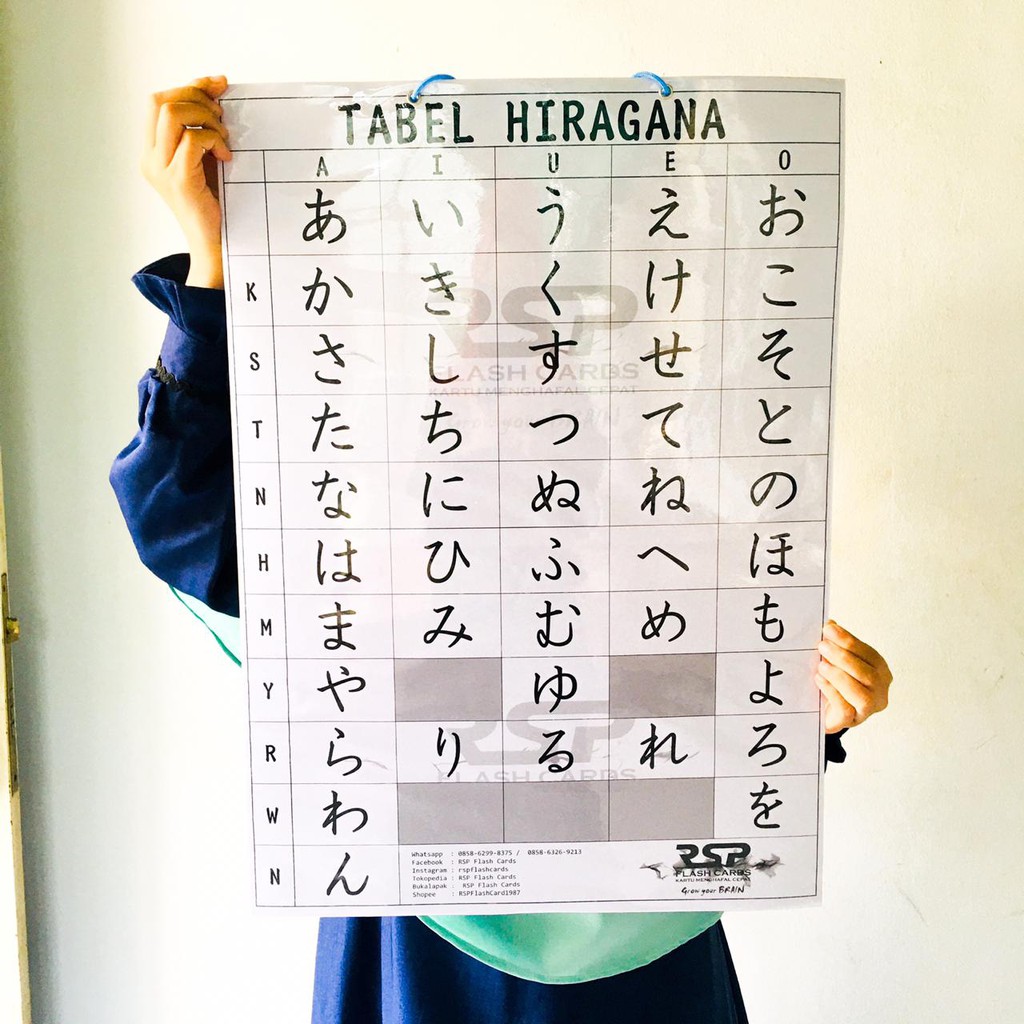 TABEL HIRAGANA
A I U E O
あ い う え お
K か き く け こ
S さ し す せ そ
T た ち つ て と
N な に ぬ ね の
H は ひ ふ へ ほ
M ま み む め も
Y や ゆ よ
R ら り る れ ろ
W わ を
N ん
RSP
FLASH CARDS
KARTU MENGHAFAL CEPAT
Grow your BRAIN
RSP
FLASH CARDS
Whatsapp : 0858-6299-8375 / 0858-6326-9213
Facebook : RSP Flash Cards
Instagram : rspflashcards
Tokopedia : RSP Flash Cards
Bukalapak : RSP Flash Cards
Shopee : RSPFlashCard1987
RSP
FLASH CARDS
KARTU MENGHAFAL CEPAT
Grow your BRAIN